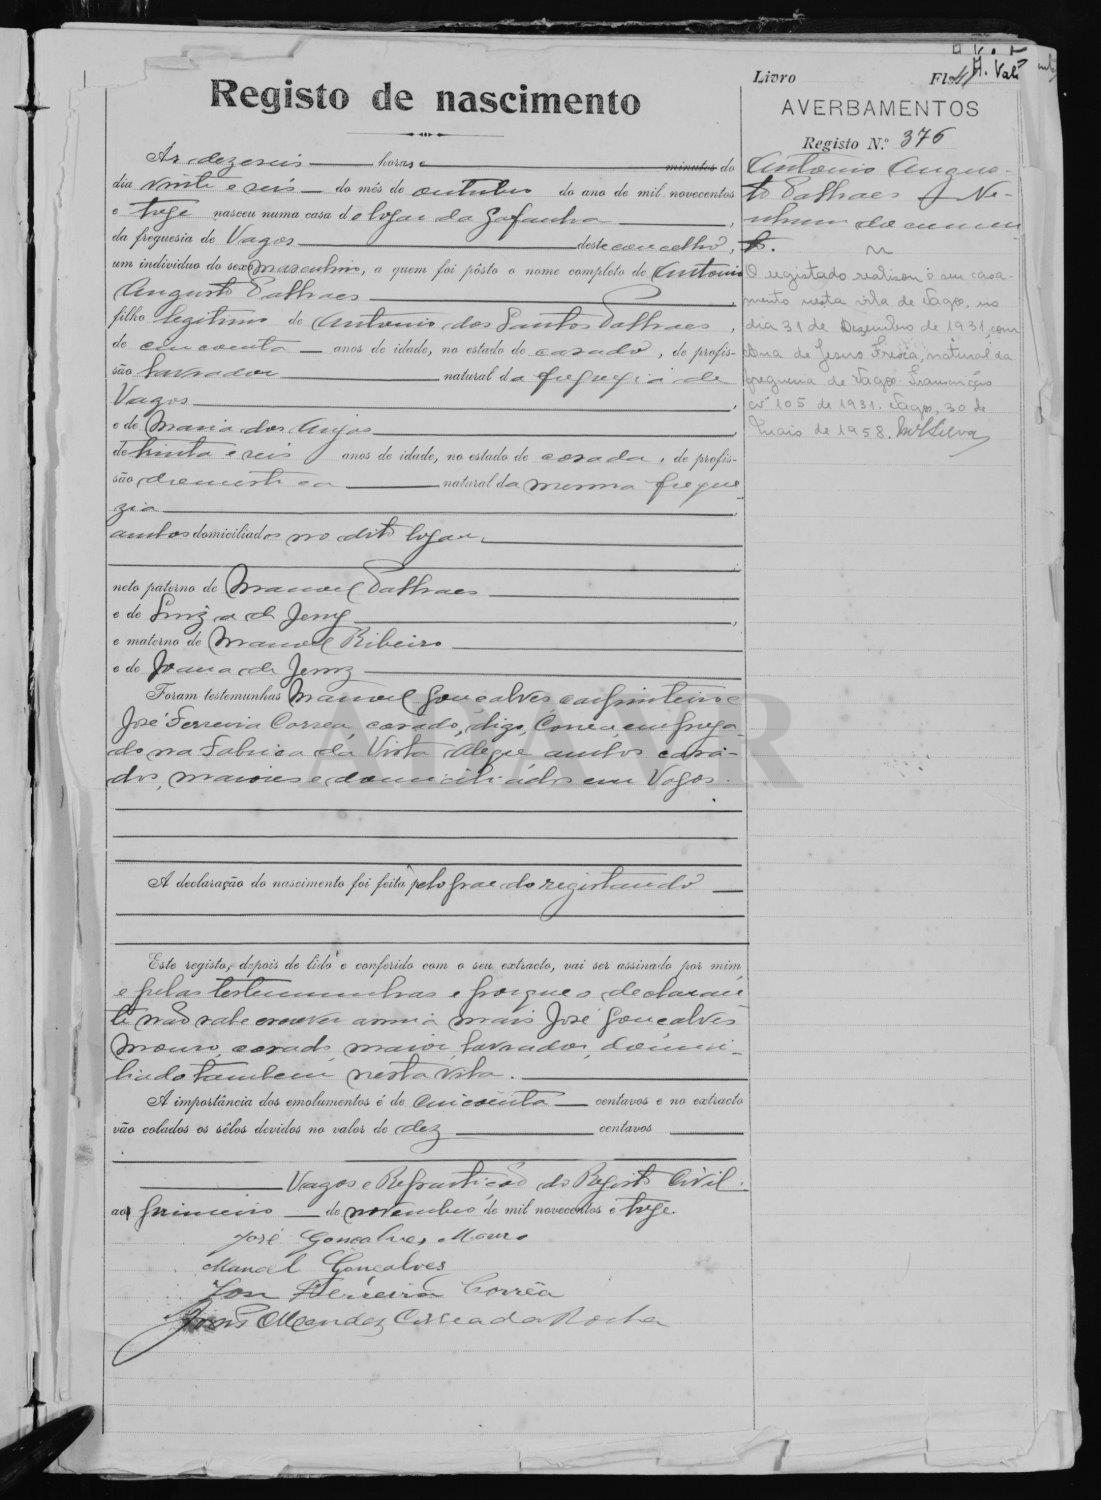 Registo de nascimento
Às dezeseis horas e minutos do
dia vinte e seis do mês de outubro do ano de mil novecentos
e treze nasceu numa casa do logar da Gafanha,
da freguesia de Vagos deste concelho,
um indivíduo do sexo masculino, a quem foi pôsto o nome completo de Antonio
Augusto
filho legitimo de Antonio dos Santos,
de cincoenta anos de idade, no estado de casado, de profis-
são lavrador natural da freguezia de
Vagos,
e de Maria dos Anjos
de trinta e seis anos de idade, no estado de casada, de profis-
são domestica natural da mesma fregue
zia
ambos domiciliados no dito logar,
neto paterno de Manoel
e de Luiza de Jesus,
e materno de Manoel Ribeiro
e de Joana de Jesus
Foram testemunhas Manoel Gonçalves, carpinteiro e
José Ferreira Correa, casado, digo, Correa, emprega-
do na Fabrica da Vista Alegre, ambos casa-
dos, maiores e domiciliados em Vagos.
A declaração do nascimento foi feita pelo pae do registando
Este registo, depois de lido e conferido com o seu extracto, vai ser assinado por mim
e pelas testemunhas e porque o declaran
te não sabe escrever assina mais José Gonçalves
Mouro, casado, maior, lavrador, domici-
liado tambem nesta vila.
A importância dos emolumentos é de cincoenta centavos e no extracto
vão colados os sêlos devidos no valor de dez centavos
Vagos e Repartição do Registo Civil.
aos primeiro de novembro de mil novecentos e treze.
José Gonçalves Mouro
Manoel Gonçalves
José Ferreira Corrêa
Mendes Correa da Rocha
Livro Fls.
AVERBAMENTOS
Registo N.º 376
Antonio Augus-
to Ne-
nhum documen
to.
O registado realisou o seu casa-
mento nesta vila de Vagos, no
dia 31 de Dezembro de 1931, com
Ana de Jesus, natural da
freguesia de Vagos. Transcrição
nº 105 de 1931. Vagos, 30 de
Maio de 1958.